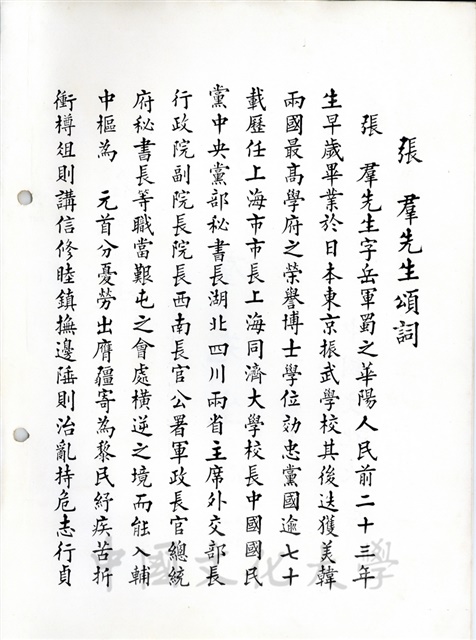 張　羣先生頌詞
張　羣先生字岳軍蜀之華陽人民前二十三年
生早歲畢業於日本東京振武學校其後迭獲美韓
兩國最高學府之榮譽博士學位効忠黨國逾七十
載歷任上海市市長上海同濟大學校長中國國民
黨中央黨部秘書長湖北四川兩省主席外交部長
行政院副院長院長西南長官公署軍政長官總統
府秘書長等職當艱屯之會處橫逆之境而能入輔
中樞為　元首分憂勞出膺疆寄為黎民紓疾苦折
衝樽俎則講信修睦鎮撫邊陲則治亂持危志行貞
中國文化大學